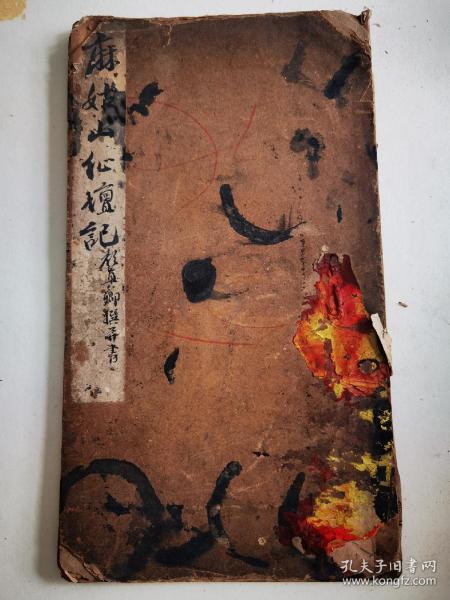 麻姑山仙壇記
顔真卿撰并書
孔夫子旧书网
www.kongfz.com